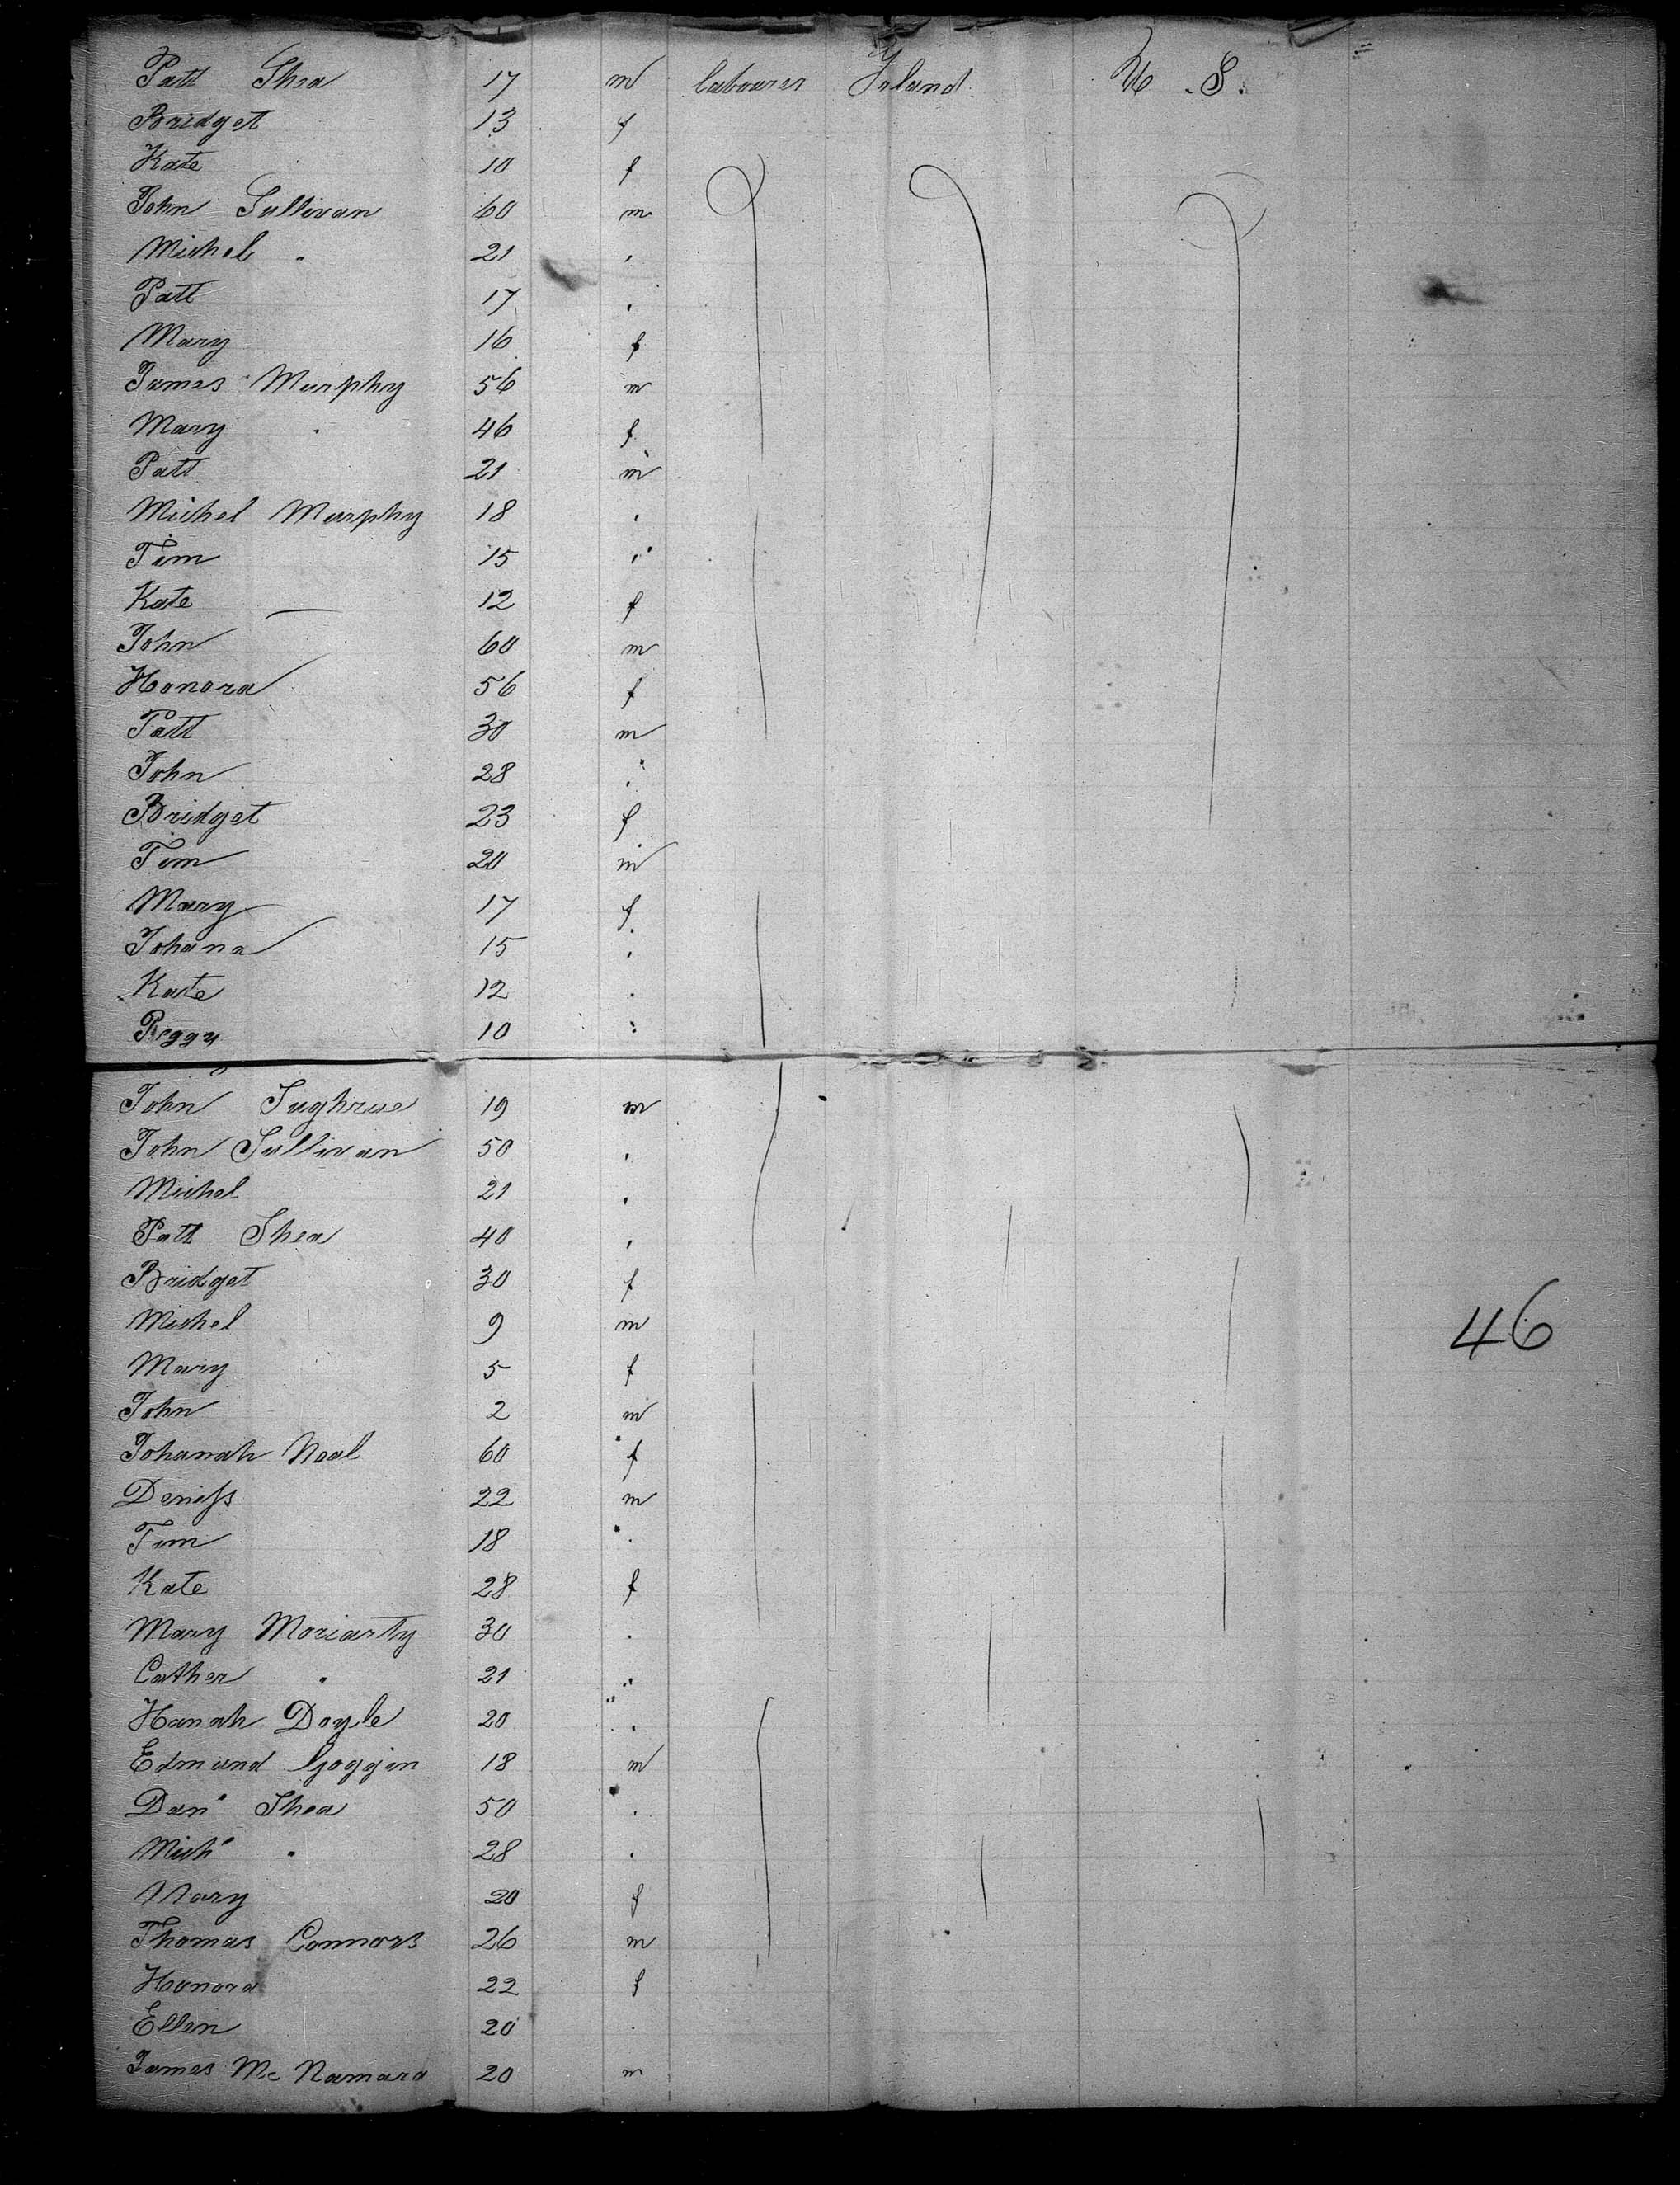 Patt Shea 17 m labourer Irland U.S.
Bridget 13 f
Kate 10 f
John Sullivan 60 m
Michel " 21 "
Patt 17 "
Mary 16 f
James Murphy 56 m
Mary " 46 f
Patt 21 m
Michel Murphy 18 "
Tim 15 "
Kate 12 f
John 60 m
Honora 56 f
Patt 30 m
John 28 "
Bridget 23 f
Tim 20 m
Mary 17 f
Johana 15 "
Kate 12 "
Peggy 10 "
John Sughrue 19 m
John Sullivan 50 "
Michel 21 "
Patt Shea 40 "
Bridget 30 f
Michel 9 m
Mary 5 f
46
John 2 m
Johanah Neal 60 f
Deniss 22 m
Tim 18 "
Kate 28 f
Mary Moriarty 30 "
Cather " 21 "
Hanah Doyle 20 "
Edmund Goggin 18 m
Danl Shea 50 "
Michl " 28 "
Mary 20 f
Thomas Connors 26 m
Honora 22 f
Ellen 20 "
James Mc Namara 20 m